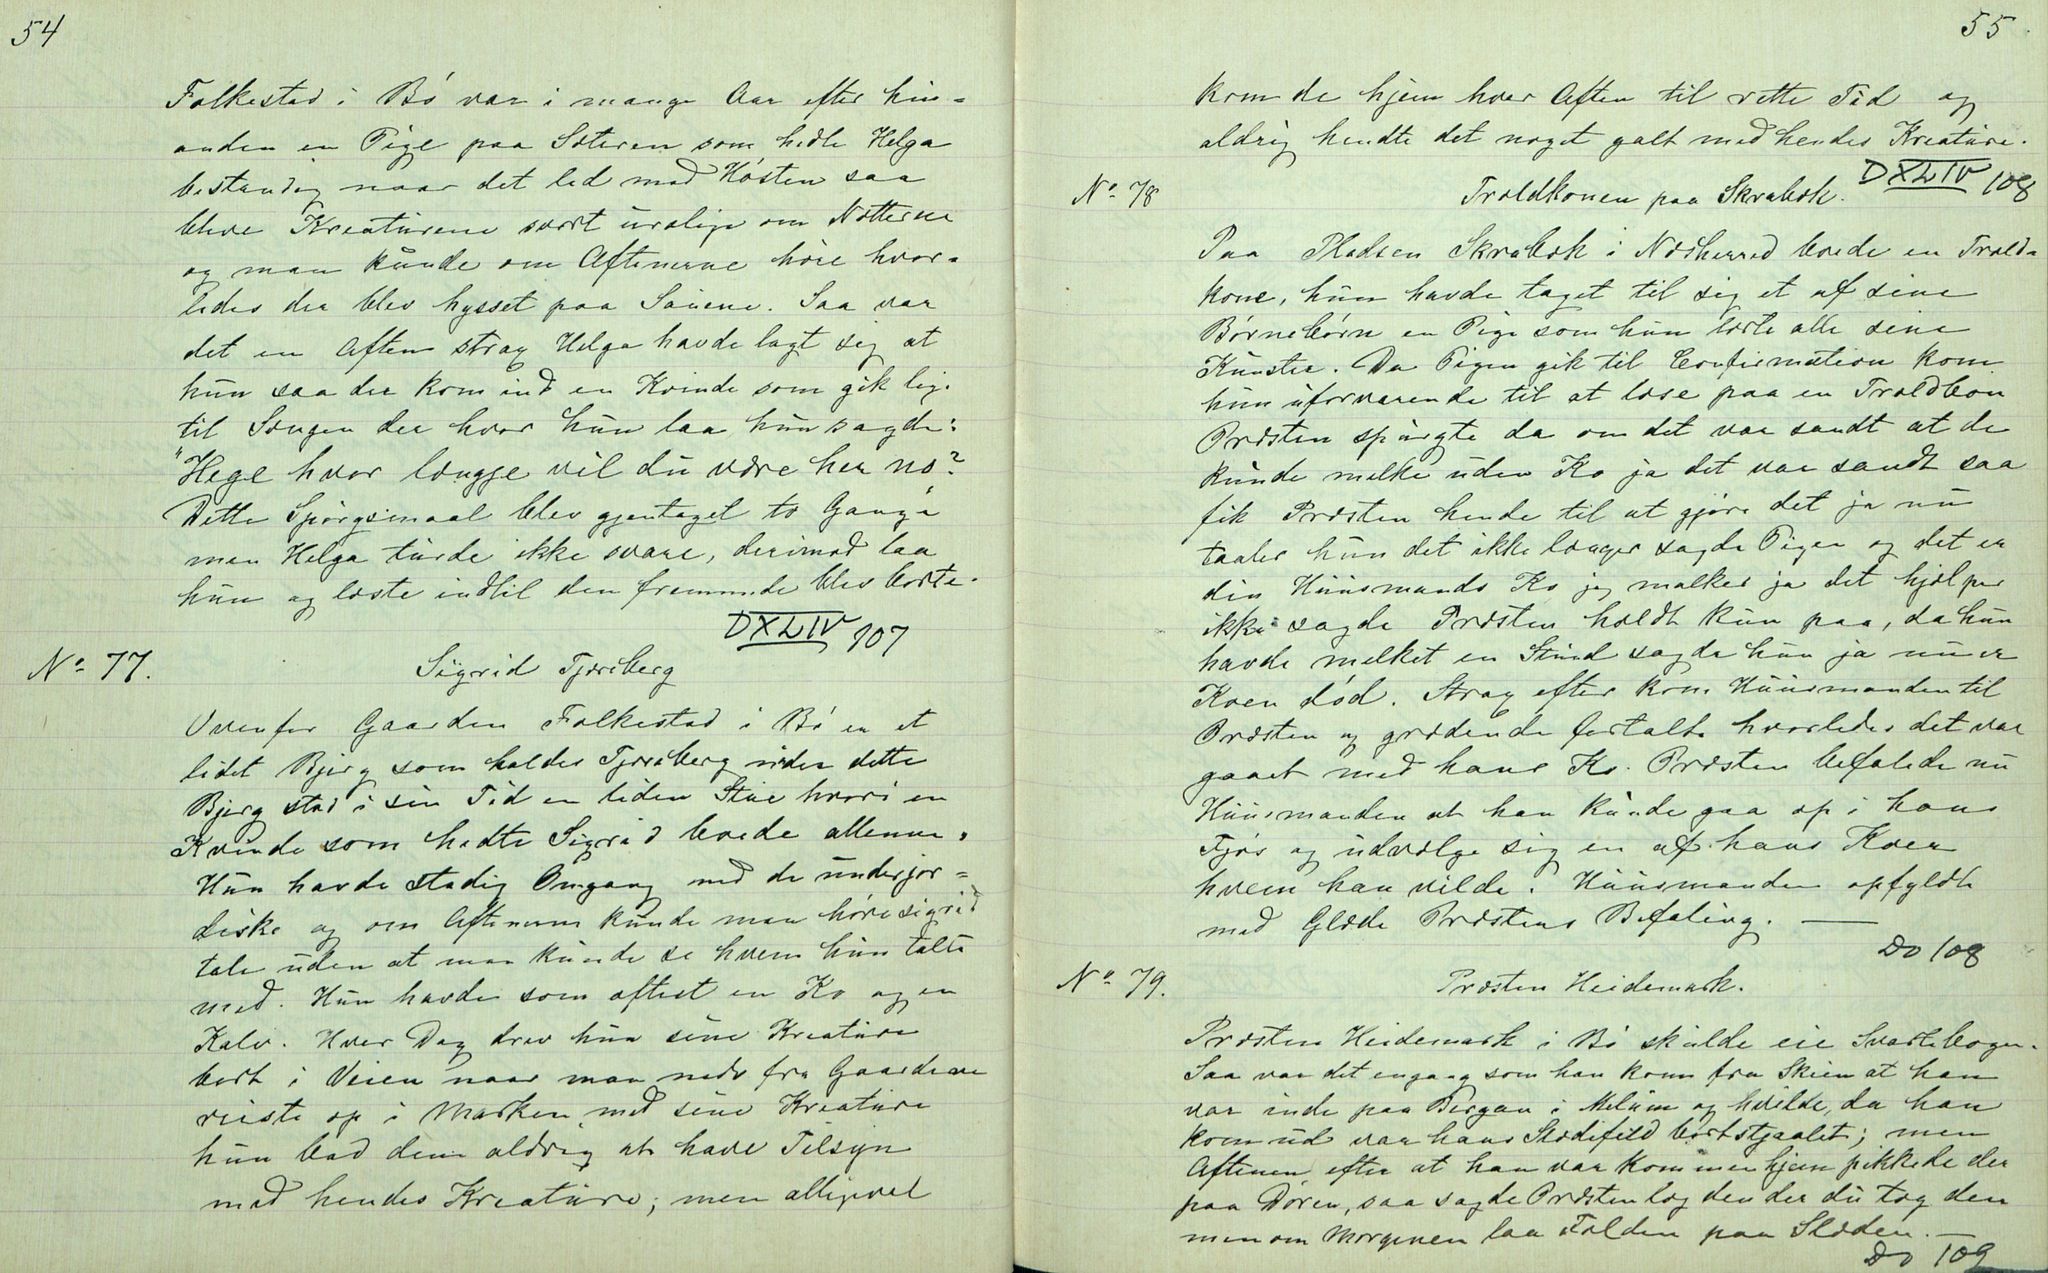 54
Folkestad i Bó var i mange Aar efter hin-
anden en Pige paa Sæteren som hedte Helga
bestandig naar det led mod Hósten saa
bleve Kreaturene svært urolige om Nætterne
og man kunde om Aftenerne hóre hvor-
ledes der blev hysset paa Sauene. Saa var
det en Aften strax Helga havde lagt sig at
hun saa der kom ind en Kvinde som gik lige
til Sængen der hvor hun laa hun sagde:
"Hege hvor længje vil du være her no?"
Dette Spórgsmaal blev gjentaget to Gange
men Helga turde ikke svare, derimod laa
hun og læste indtil den fremmede blev borte.
DXLIV 107
No 77.
Sigrid Tjærsberg
Ovenfor Gaarden Folkestad i Bó er et
lidet Bjerg som kaldes Tjærsberg under dette
Bjerg stod i sin Tid en liden Stue hvori en
Kvinde som hedte Sigrid boede allene.
Hun havde stadig Omgang med de underjor-
diske og om Aftenerne kunde man hóre Sigrid
tale uden at man kunde se hvem hun talte
med. Hun havde som oftest en Ko og en
Kalv. Hver Dag drev hun sine Kreature
bort i Veien naar man nede fra Gaardene
reiste op i Marken med sine Kreature
hun bad dem aldrig at have Tilsyn
med hendes Kreature; men alligevel
55
kom de hjem hver Aften til rette Tid og
aldrig hendte det noget galt med hendes Kreature.
DXLIV 108
No 78
Troldkonen paa Skrabek.
Paa Pladsen Skrabek i Nesherred boede en Trold-
kone, hun havde taget til sig et af sine
Bórnebórn en Pige som hun lærte alle sine
Kunster. Da Pigen gik til Confirmation kom
hun uforvarende til at læse paa en Troldbón
Præsten spurgte da om det var sandt at de
kunde melke uden Ko ja det var sandt saa
fik Præsten hende til at gjóre det ja nu
taaler hun det ikke længer sagde Pigen og det er
din Huusmands Ko jeg malker ja det hjælper
ikke sagde Præsten holdt kun paa, da hun
havde melket en Stund sagde hun ja nu er
Koen dód. Strax efter kom Huusmanden til
Præsten og grædende fortalte hvorledes det var
gaaet med hans Ko. Præsten befalede nu
Huusmanden at han kunde gaa op i hans
Fjós og udvælge sig en af hans Kóer
hvem han vilde. Huusmanden opfyldte
med Glæde Præstens Befaling.
Do 108
No 79.
Præsten Heidemark.
Præsten Heidemark i Bó skulde eie Svartebogen.
Saa var det engang som han kom fra Skien at han
var inde paa Bergan i Melum og hvilde, da han
kom ud var hans Slædefeld bortstjaalet; men
Aftenen efter at han var kommen hjem pikkede der
paa Dóren, saa sagde Præsten læg den der du tog den
men om Morgenen laa Felden paa Slæden.
Do 109